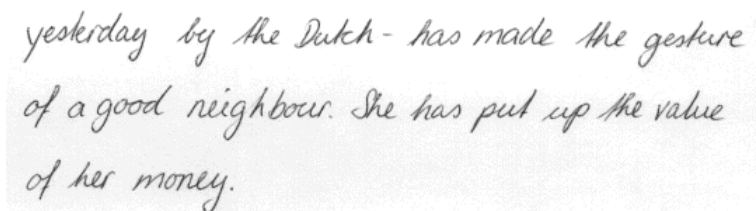 yesterday by the Dutch - has made the gesture
of a good neighbour. She has put up the value
of her money.